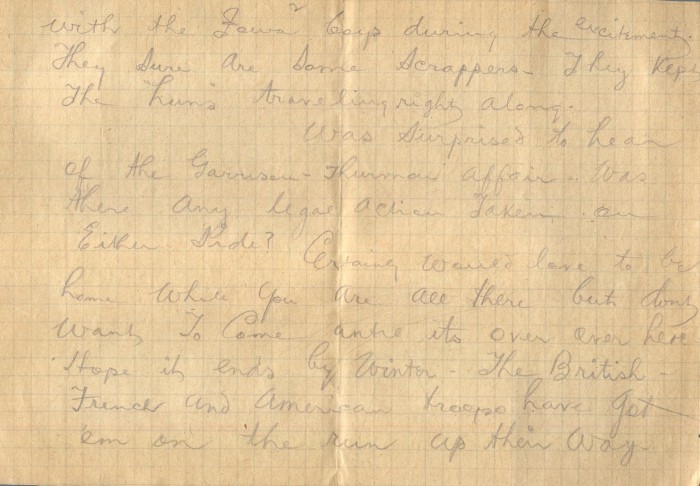 with the Iowa boys during the excitement.
They sure are some scrappers - They kept
The huns traveling right along.
Was surprised to hear
of the Garrison - Thurman affair. Was
there any legal action taken on
Either side? Certainly would love to be
home while you are all there but dont
want to come until its over over here
Hope it ends by Winter - The British -
French and American troops have got
'em on the run up their way